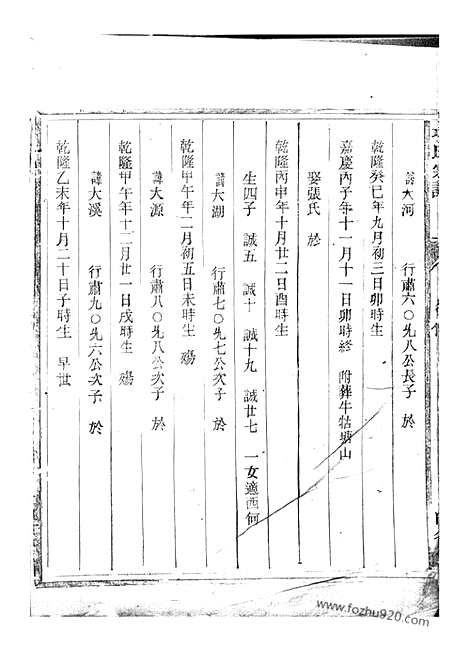 諱大河　行肅六〇先八公長子　於
乾隆癸巳年九月初三日卯時生
嘉慶丙子年十一月十一日卯時終　附葬牛牯山
娶張氏　於
乾隆丙申年十月廿二日酉時生
生四子　誠五　誠十　誠十九　誠廿七　一女適西何
諱大湖　行肅七〇先七公次子　於
乾隆甲午年二月初五日未時生　殤
諱大源　行肅八〇先八公次子　於
乾隆甲午年十二月廿一日戌時生　殤
諱大溪　行肅九〇先六公次子　於
乾隆乙未年十月二十日子時生　早世
www.fozhu920.com